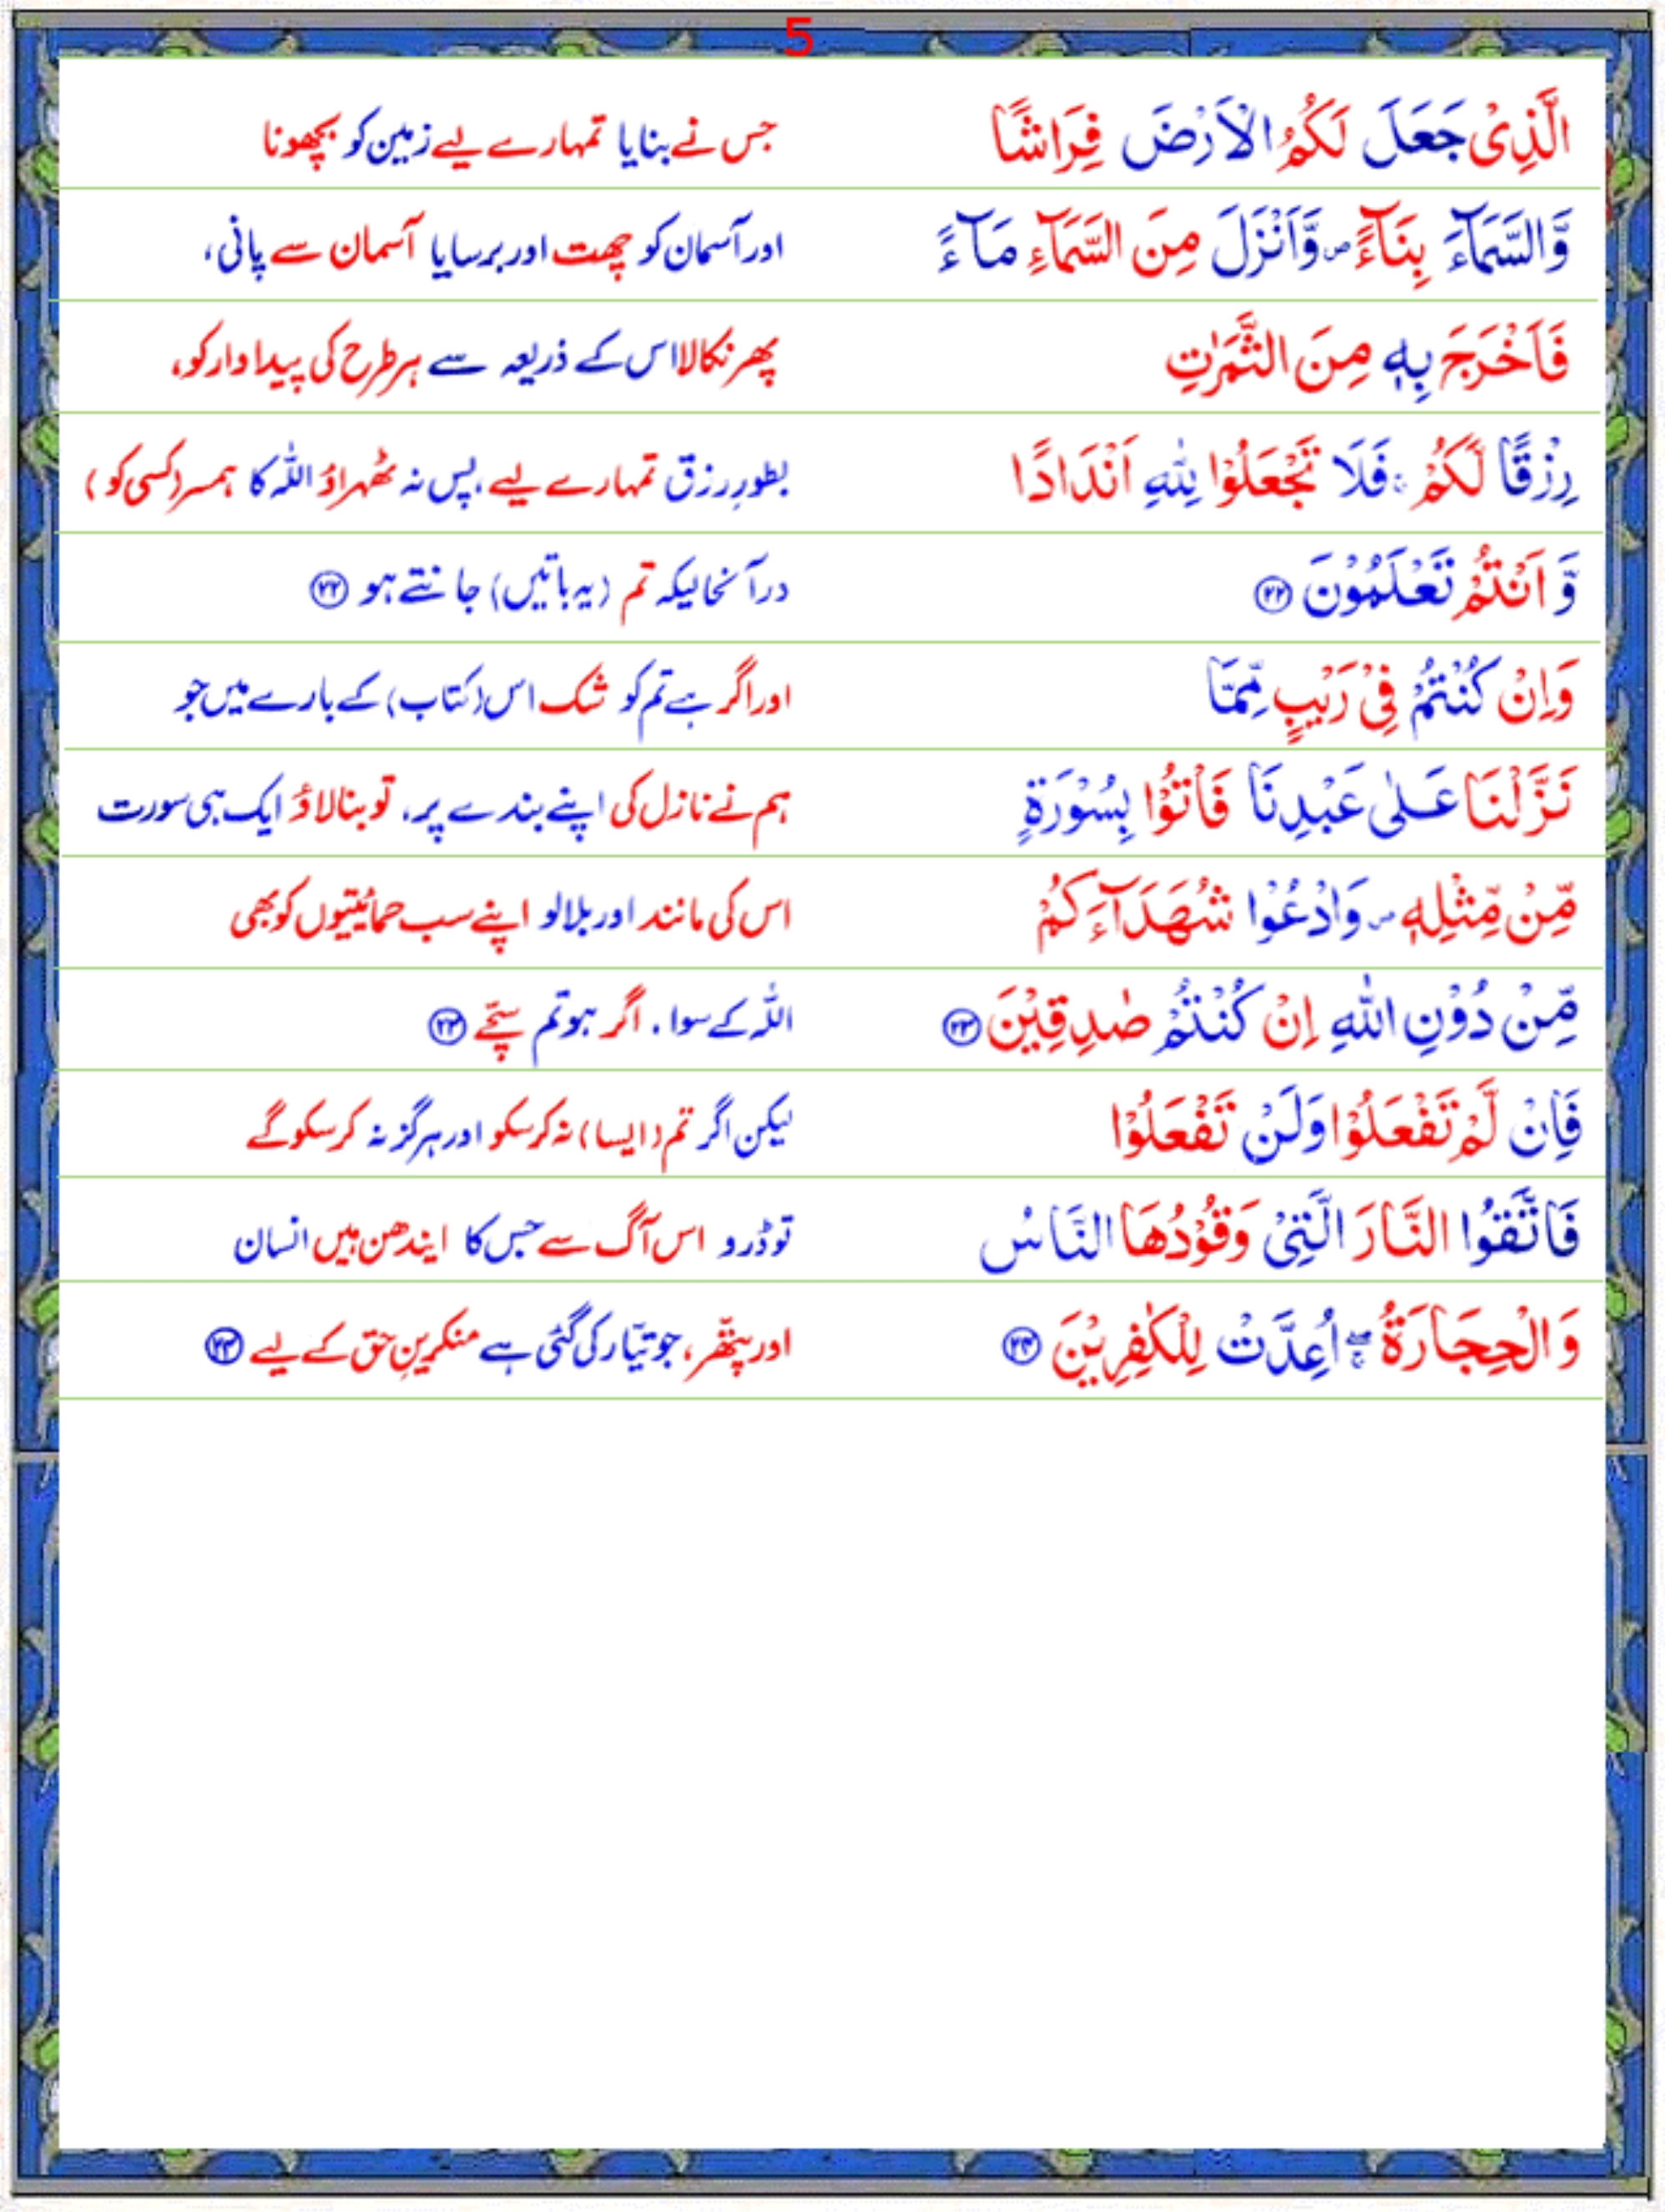 5
الَّذِیْ جَعَلَ لَكُمُ الْاَرْضَ فِرَاشًا جس نے بنایا تمہارے لیے زمین کو بچھونا
وَّالسَّمَآءَ بِنَآءً ۪ وَّاَنْزَلَ مِنَ السَّمَآءِ مَآءً اور آسمان کو چھت اور برسایا آسمان سے پانی،
فَاَخْرَجَ بِهٖ مِنَ الثَّمَرٰتِ پھر نکالا اس کے ذریعہ سے ہر طرح کی پیداوار کو،
رِزْقًا لَّكُمْ ۚ فَلَا تَجْعَلُوْا لِلّٰهِ اَنْدَادًا بطورِ رزق تمہارے لیے، پس نہ ٹھہراؤ اللہ کا ہمسر (کسی کو)
وَّ اَنْتُمْ تَعْلَمُوْنَ ﴿۲۲﴾ درآنحالیکہ تم (یہ باتیں) جانتے ہو ﴿۲۲﴾
وَاِنْ كُنْتُمْ فِیْ رَیْبٍ مِّمَّا اور اگر ہے تم کو شک اس (کتاب) کے بارے میں جو
نَزَّلْنَا عَلٰی عَبْدِنَا فَاْتُوْا بِسُوْرَةٍ ہم نے نازل کی اپنے بندے پر، تو بنا لاؤ ایک ہی سورت
مِّنْ مِّثْلِهٖ ۪ وَادْعُوْا شُهَدَآءَكُمْ اس کی مانند اور بلا لو اپنے سب حمائیتیوں کو بھی
مِّنْ دُوْنِ اللّٰهِ اِنْ كُنْتُمْ صٰدِقِیْنَ ﴿۲۳﴾ اللہ کے سوا، اگر ہو تم سچّے ﴿۲۳﴾
فَاِنْ لَّمْ تَفْعَلُوْا وَلَنْ تَفْعَلُوْا لیکن اگر تم (ایسا) نہ کر سکو اور ہرگز نہ کر سکو گے
فَاتَّقُوا النَّارَ الَّتِیْ وَقُوْدُهَا النَّاسُ تو ڈرو اس آگ سے جس کا ایندھن ہیں انسان
وَالْحِجَارَةُ ۖۚ اُعِدَّتْ لِلْكٰفِرِیْنَ ﴿۲۴﴾ اور پتھّر، جو تیّار کی گئی ہے منکرینِ حق کے لیے ﴿۲۴﴾